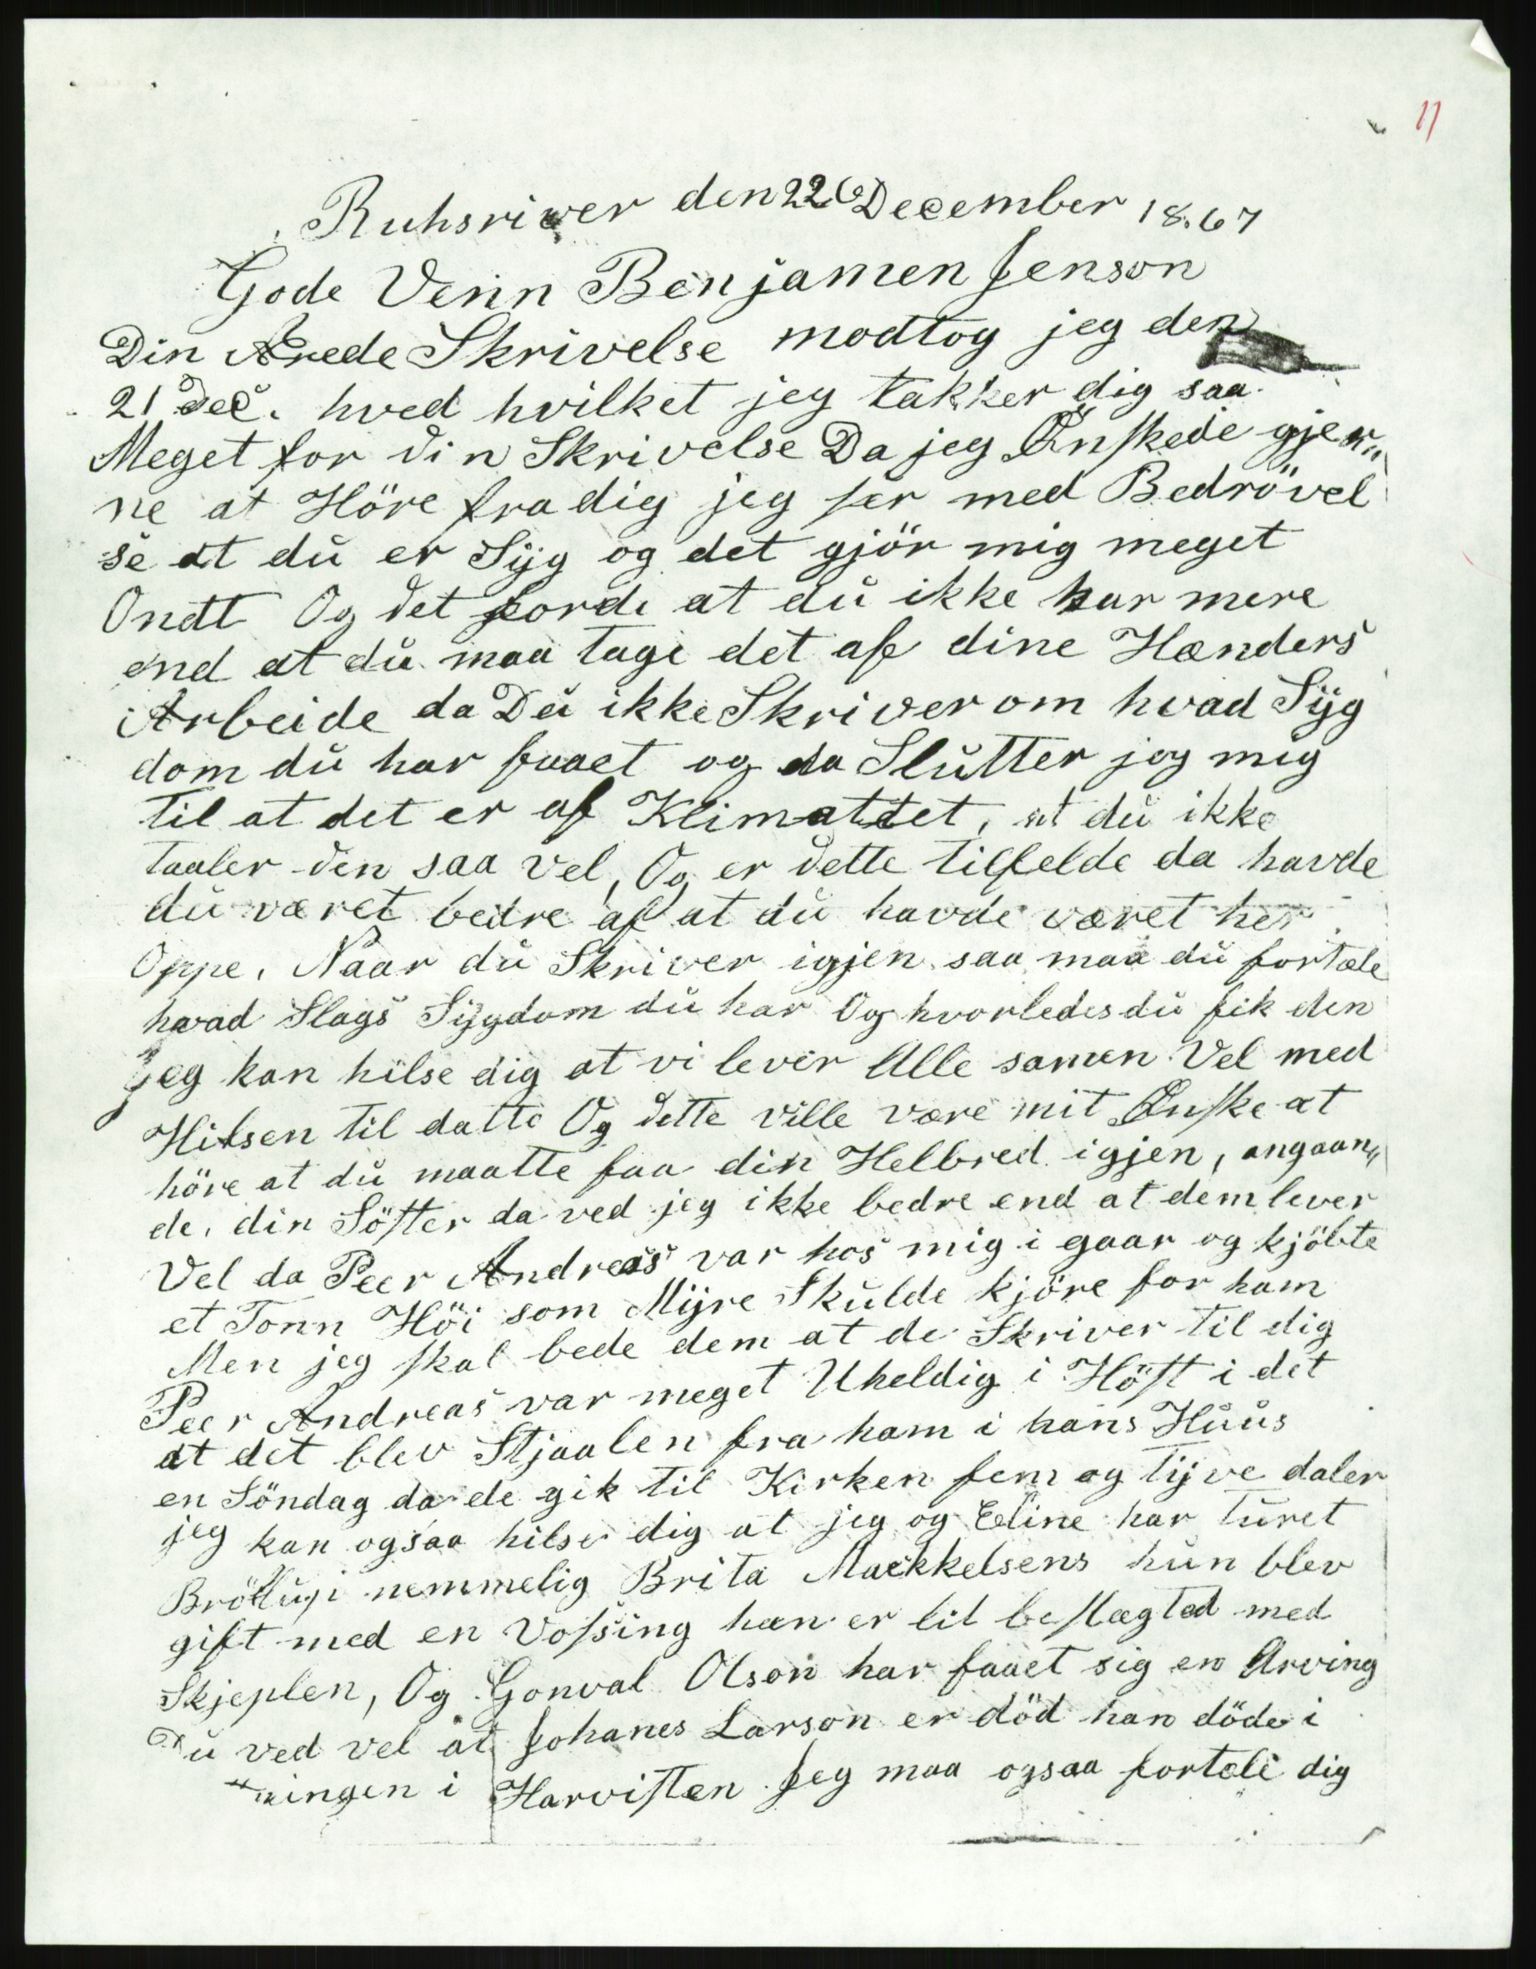 11
Ruhsriwer den 22 December 18.67
Gode Venn Benjamen Jenson
Din Ærede Skrivelse modtog jeg den
21 Dec. hved hvilket jeg takker dig saa
Meget for din Skrivelse Da jeg Ønskede gjer„
ne at Höre fra dig jeg ser med Bedrövel
se at du er Syg og det gjör mig meget
Ondt Og det fordi at du ikke har mere
end at du maa tage det af dine Hænders
Arbeide da Du ikke Skriver om hvad Syg
dom du har faaet og da Slutter jeg mig
til at det er af Klimattet, at du ikke
taaler den saa vel, Og er dette tilfelde da havde
du været bedre af at du havde været her
Oppe. Naar du Skriver igjen saa maa du fortæle
hvad Slags Sygdom du har Og hvorledes du fik den
jeg kan hilse dig at vi lever Alle samen Vel med
Hilsen til datto Og dette ville være mit Ønske at
höre at du maatte faa din Helbred igjen, angaan„
de, din Söster da ved jeg ikke bedre end at dem lever
Vel da Peer Andreas var hos mig i gaar og kjöbte
et Tonn Höi som Myre Skulde kjöre for ham
Men jeg skal bede dem at de Skriver til dig
Peer Andreas var meget Uheldig i Höst i det
at det blev Stjaalen fra ham i hans Huus
en Söndag da de gik til Kirken fem og tyve daler
jeg kan ogsaa hilse dig at jeg og Eline har turet
Brötlup i nemmelig Brita Mackkelsens hun blev
gift med en Vossing han er lit beslægted med
Skjeplen, Og Gonval Olson har faaet sig en Arving
Du ved vel at Johanes Larson er död han döde i
ningen i Harvisten Jeg maa ogsaa fortæle dig